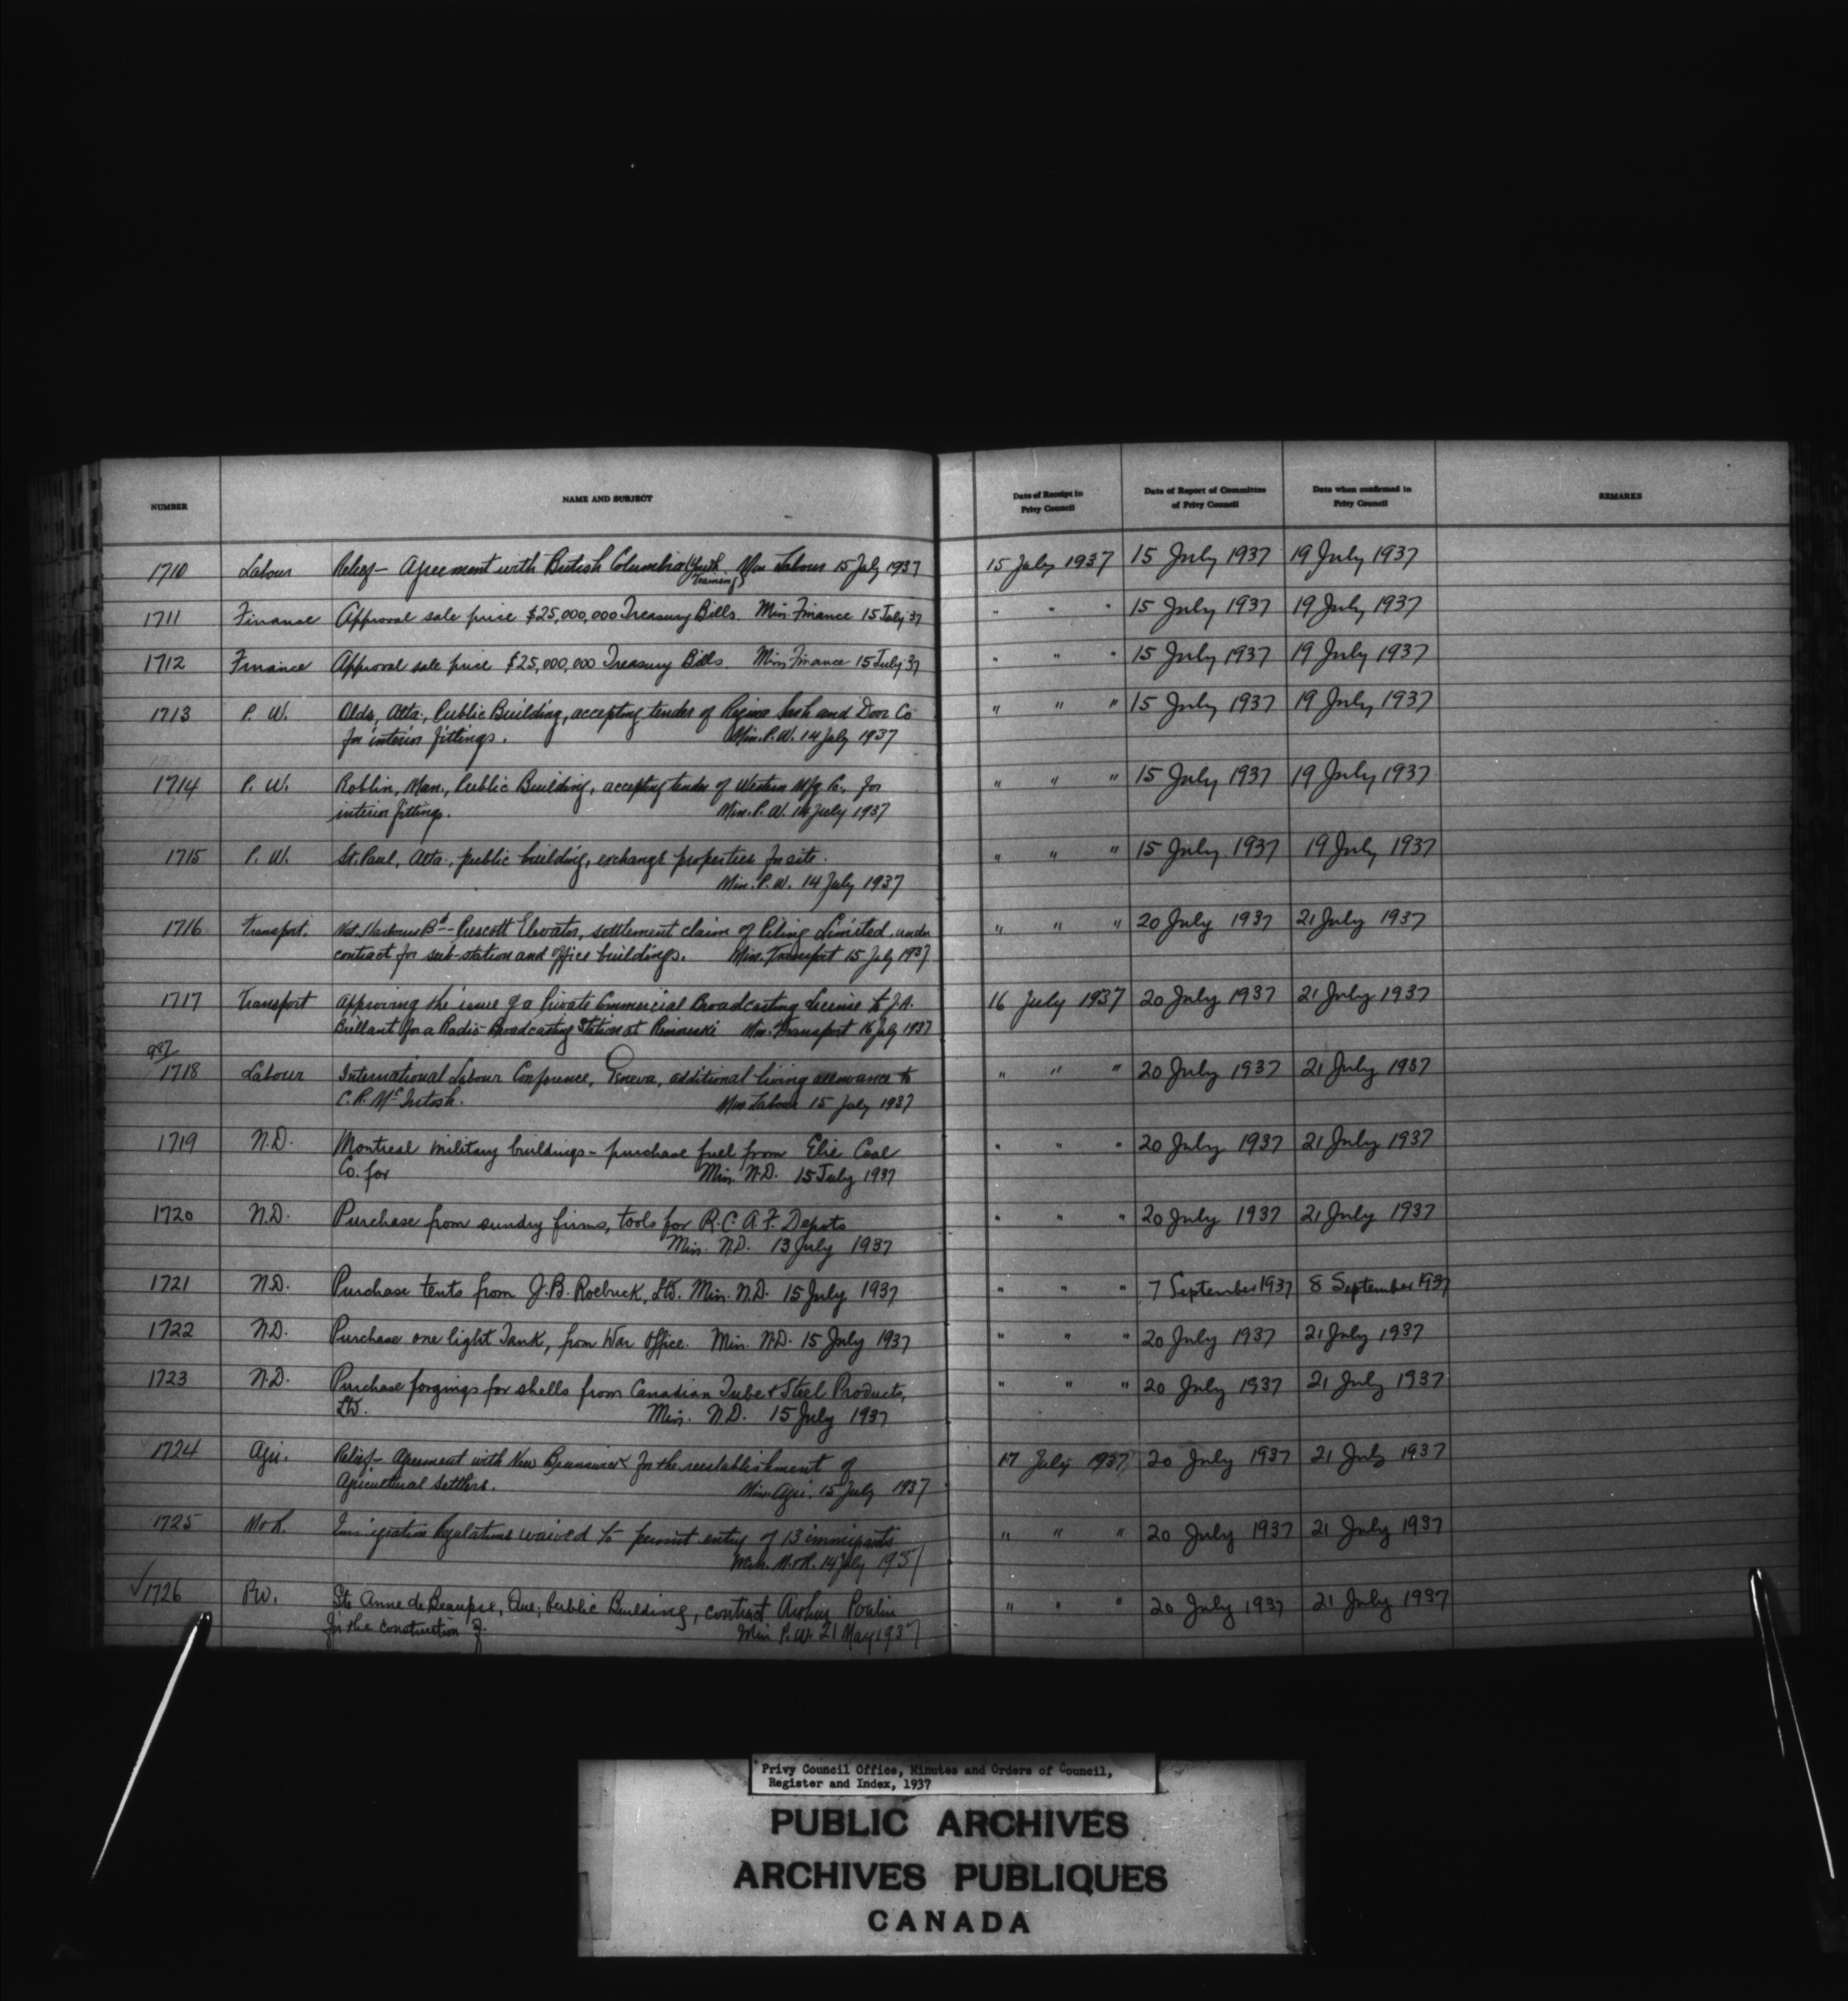 NUMBER
NAME AND SUBJECT
Date of Receipt in
Privy Council
Date of Report of Committee
of Privy Council
Date when confirmed in
Privy Council
REMARKS
1710 Labour Relief - Agreement with British Columbia (Youth Training) Min Labour 15 July 1937 15 July 1937 15 July 1937 19 July 1937
1711 Finance Approval sale price $25,000,000 Treasury Bills. Min. Finance 15 July 37 " " " 15 July 1937 19 July 1937
1712 Finance Approval sale price $25,000,000 Treasury Bills. Min Finance 15 July 37 " " " 15 July 1937 19 July 1937
1713 P. W. Olds, Alta., Public Building, accepting tender of Regina Sash and Door Co " " " 15 July 1937 19 July 1937
for interior fittings. Min. P. W. 14 July 1937
1714 P. W. Roblin, Man., Public Building, accepting tender of Western Mfg Co., for " " " 15 July 1937 19 July 1937
interior fittings. Min. P. W. 14 July 1937
1715 P. W. St. Paul, Alta., public building, exchange properties for site. " " " 15 July 1937 19 July 1937
Min. P. W. 14 July 1937
1716 Transport. Nat. Harbours Bd - Prescott Elevator, settlement claim of Piling Limited, under " " " 20 July 1937 21 July 1937
contract for sub-station and office buildings. Min. Transport 15 July 1937
1717 Transport Approving the issue of a Private Commercial Broadcasting License to J.A. 16 July 1937 20 July 1937 21 July 1937
Brillant for a Radio-Broadcasting Station at Rimouski Min. Transport 16 July 1937
987
1718 Labour International Labour Conference, Geneva, additional living allowance to " " " 20 July 1937 21 July 1937
C. R. McIntosh. Min Labour 15 July 1937
1719 N.D. Montreal military buildings - purchase fuel from Elie Coal " " " 20 July 1937 21 July 1937
Co. for Min. N.D. 15 July 1937
1720 N.D. Purchase from sundry firms, tools for R.C.A.F. Depots " " " 20 July 1937 21 July 1937
Min. N.D. 13 July 1937
1721 N.D. Purchase tents from J.B. Roebuck, Ltd. Min. N.D. 15 July 1937 " " " 7 September 1937 8 September 1937
1722 N.D. Purchase one light Tank, from War Office. Min. N.D. 15 July 1937 " " " 20 July 1937 21 July 1937
1723 N.D. Purchase forgings for shells from Canadian Tube & Steel Products, " " " 20 July 1937 21 July 1937
Ltd. Min. N.D. 15 July 1937
1724 Agri. Relief - Agreement with New Brunswick for the reestablishment of 17 July 1937 20 July 1937 21 July 1937
Agricultural settlers. Min. Agri. 15 July 1937
1725 M&R. Immigration Regulations waived to permit entry of 13 immigrants " " " 20 July 1937 21 July 1937
Min. M&R. 14 July 1937
√1726 P.W. Ste Anne de Beaupre, Que; Public Building, contract Arthur Poulin " " " 20 July 1937 21 July 1937
for the construction of. Min P. W. 21 May 1937
Privy Council Office, Minutes and Orders of Council,
Register and Index, 1937
PUBLIC ARCHIVES
ARCHIVES PUBLIQUES
CANADA